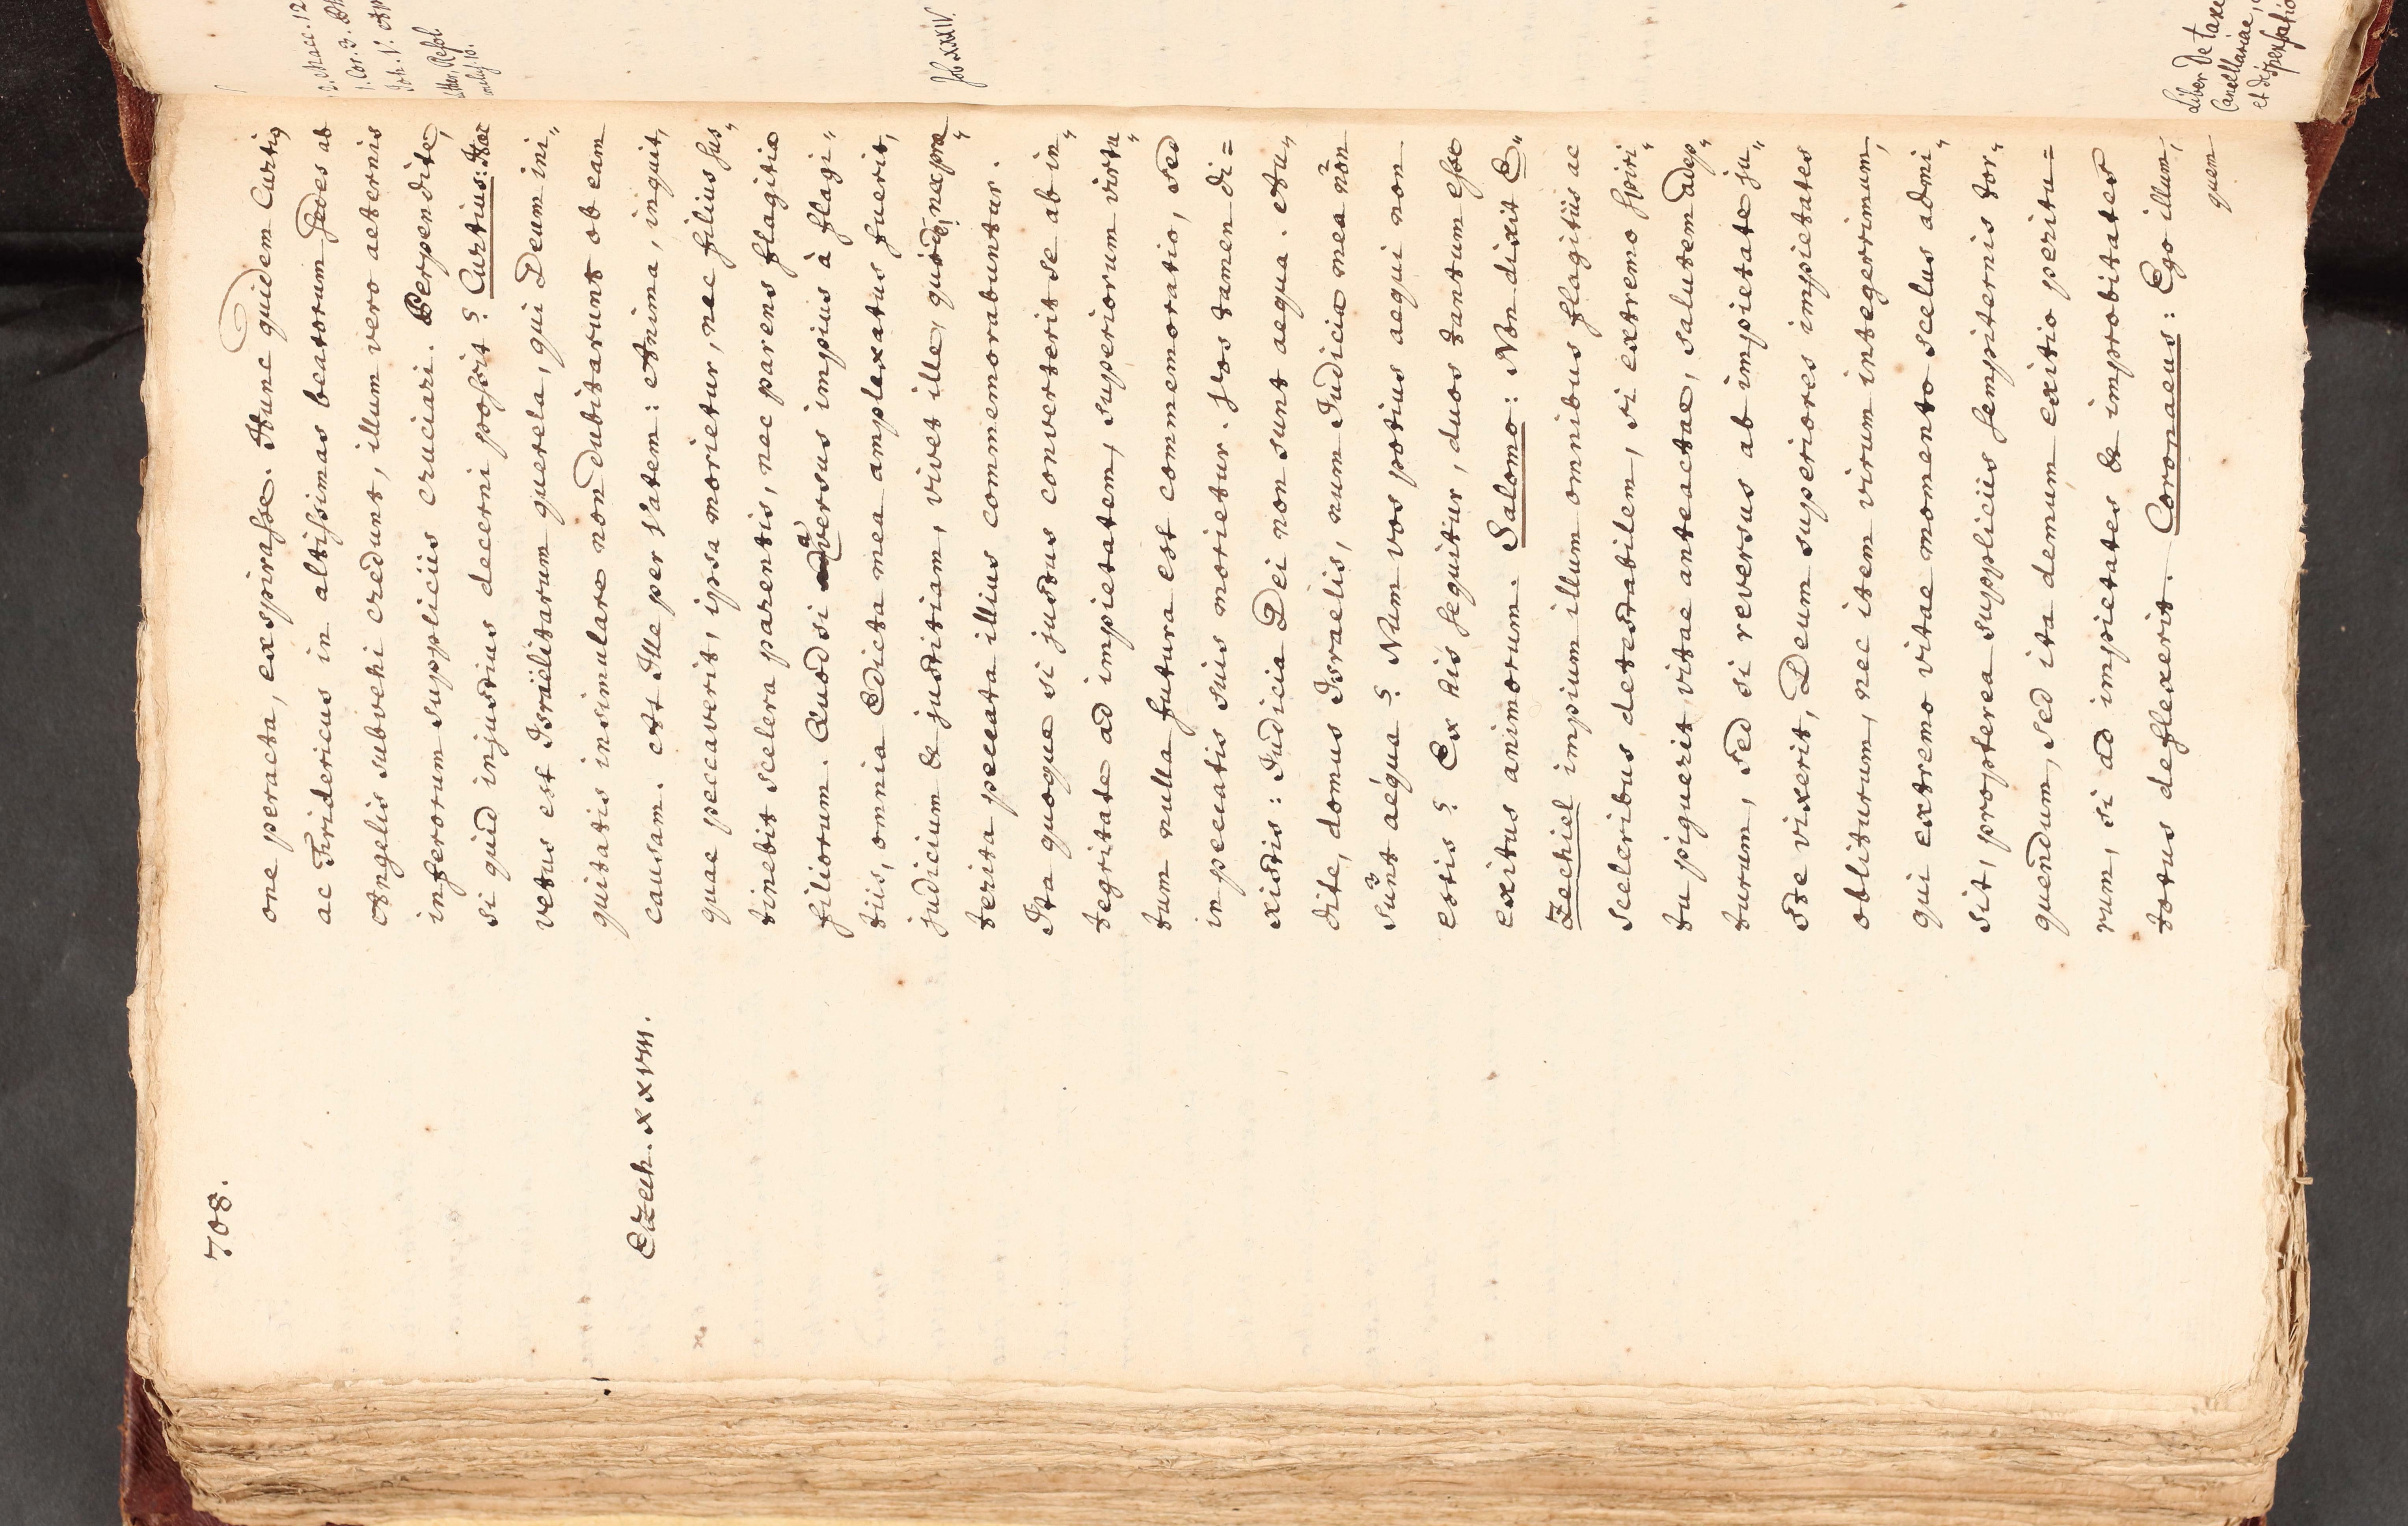 708.
one peracta, exspirasse. Hunc quidem Curtiq
ac Fridericus in altissimas beatorum sedes ab
Angelis subvehi credunt, illum vero aeternis
inferorum suppliciis cruciari. Perpendite,
si quid injustius decerni possit? Curtius: Haec
vetus est Israëlitarum querela, qui Deum ini„
quitatis insimulare non dubitarunt ob eam
Ezech. XVIII.
causam. At Ille per Vatem: Anima, inquit,
quae peccaverit, ipsa morietur, nec filius sus„
tinebit scelera parentis, nec parens flagitia
filiorum. Quod si aversus impius à flagi„
tiis, omnia Edicta mea amplexatus fuerit,
judicium & justitiam, vivet ille, quidē, nec prae„
terita peccata illius commemorabuntur.
Ita quoque si justus converterit se ab in„
tegritate ad impietatem, superiorum virtu„
tum nulla futura est commemoratio, sed
in peccatis suis morietur. Vos tamen di=
xistis: Iudicia Dei non sunt aequa. Au„
dite, domus Israelis, num Iudicia mea 2 non
3 sunt aequa? Num vos potius aequi non
estis? Ex his sequitur, duos tantum esse
exitus animorum. Salomo: Non dixit E„
zechiel impium illum omnibus flagitiis ac
sceleribus detestabilem, si extremo spiri„
tu piguerit vitae anteactae, salutem adep„
turum, sed si reversus ab impietate ju„
ste vixerit, Deum superiores impietates
obliturum, nec item virum integerrimum,
qui extremo vitae momento scelus admi„
sit, propterea suppliciis sempiternis tor„
quendum, sed ita demum exitio peritu=
rum, si ad impietates & improbitates
totus deflexerit. Coronaeus: Ego illum,
quem
2. Macc. 12
1. Cor. 3.
Joh. V.
Job. XXXIV.
Liber De taxa
Cancellariae,
et dispensatio